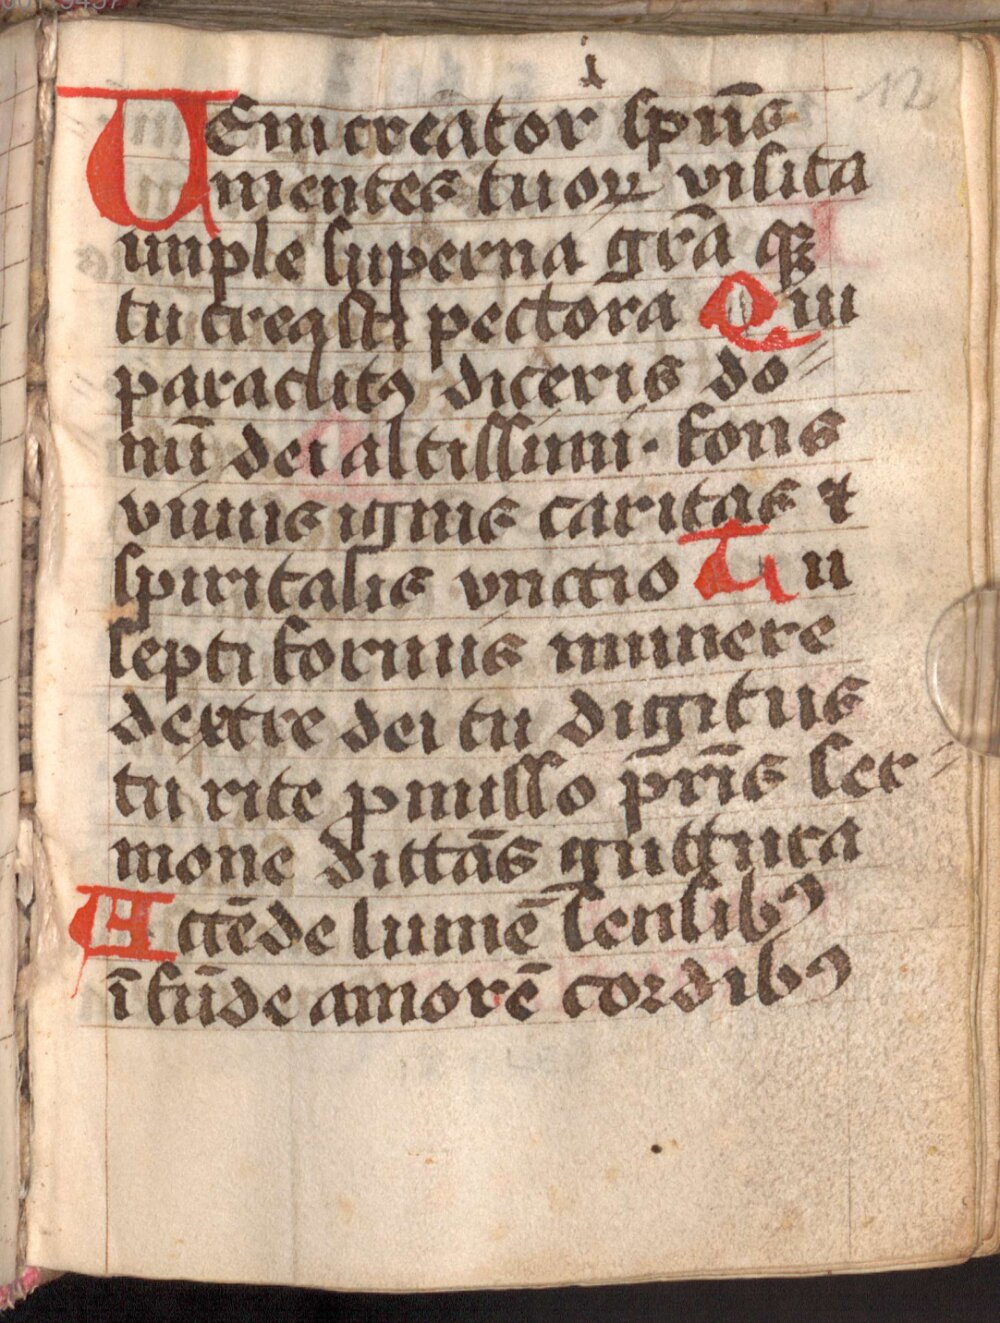 12
VEni creātor spūs
mentes tuoꝝ visita
imple superna gr̄a q̄
tu creasti pectora Qui
paraclitꝰ diceris do⸗
nū dei altissimi · fons
viuus ignis caritas ⁊
spiritalis vnctio Tu
septiformis munere
dextre dei tu digitus
tu rite ꝓmisso pr̄is ser⸗
mone dittās guttura
Accēde lumē sensibꝰ
īfūde amorē cordibꝰ